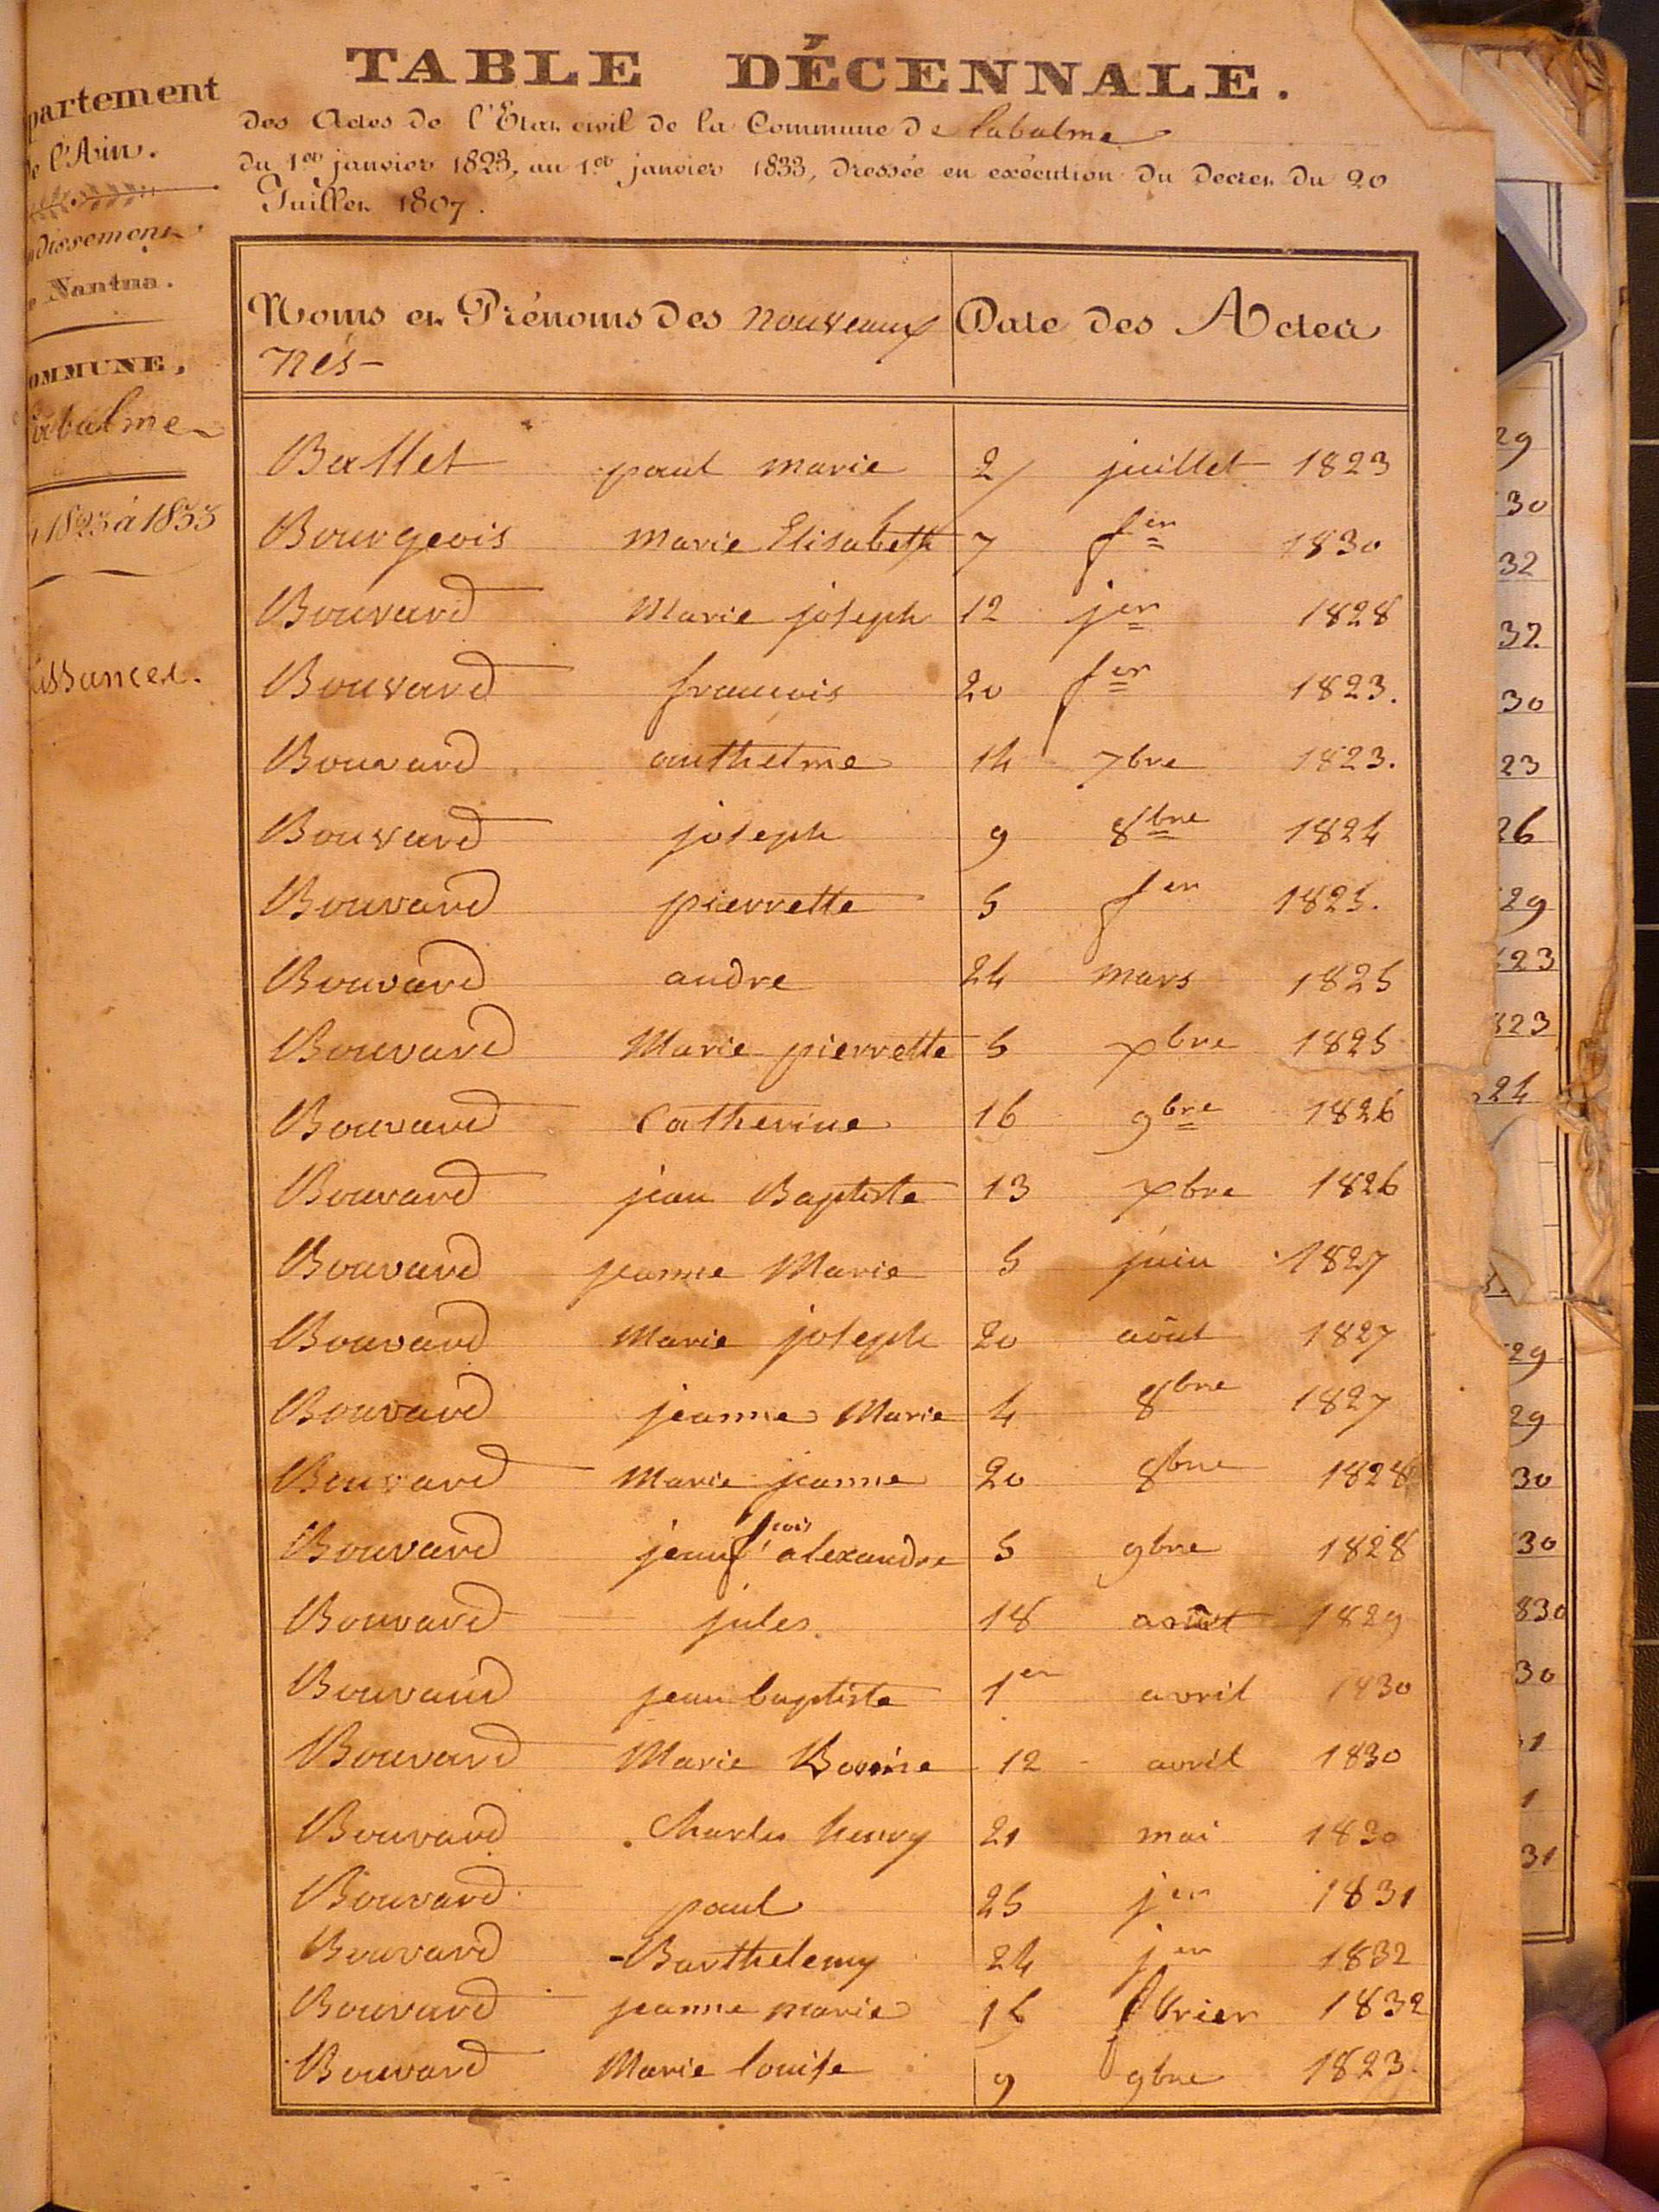 TABLE DÉCENNALE.
des Actes de l'Etat civil de la Commune de labalme
du 1er janvier 1823, au 1er janvier 1833, dressée en exécution du Decret du 20
Juillet 1807.
partement
de l'Ain.
ndissement
e Nantua.
OMMUNE,
labalme
1823 à 1833
aissances.
Noms et Prénoms des nouveaux Date des Actes
nés
Ballet paul marie 2 juillet 1823
Bourgeois Marie Elisabeth 7 fer 1830
Bouvard Marie joseph 12 jer 1828
Bouvard francois 20 fer 1823.
Bouvard anthelme 14 7bre 1823.
Bouvard joseph 9 8bre 1824
Bouvard pierrette 5 fer 1825.
Bouvard andre 24 mars 1825
Bouvard Marie pierrette 5 xbre 1825
Bouvard Catherine 16 9bre 1826
Bouvard jean Baptiste 13 xbre 1826
Bouvard jeanne Marie 5 juin 1827
Bouvard Marie joseph 20 août 1827
Bouvard jeanne Marie 4 8bre 1827
Bouvard Marie jeanne 20 8bre 1828
Bouvard jean fcois alexandre 5 9bre 1828
Bouvard jules 18 août 1829
Bouvard jean baptiste 1er avril 1830
Bouvard Marie 12 avril 1830
Bouvard Charles henry 21 mai 1830
Bouvard paul 25 jer 1831
Bouvard Barthelemy 24 jer 1832
Bouvard jeanne marie 15 fbrier 1832
Bouvard Marie louise 9 9bre 1823.
29
30
32
32.
30
23
26
29
23
823
24
29
29
30
30
830
30
31
1
31